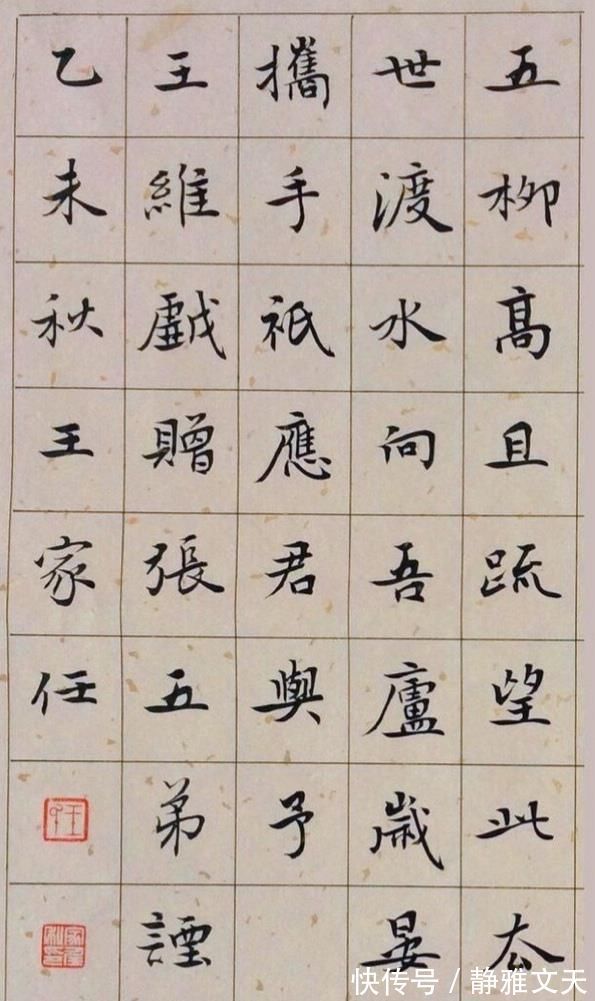 五柳髙且疏望此去
世渡水向吾廬歲晏
攜手祇應君與予
王維戯贈張五弟諲
乙未秋王家任
快传号 / 静雅文天